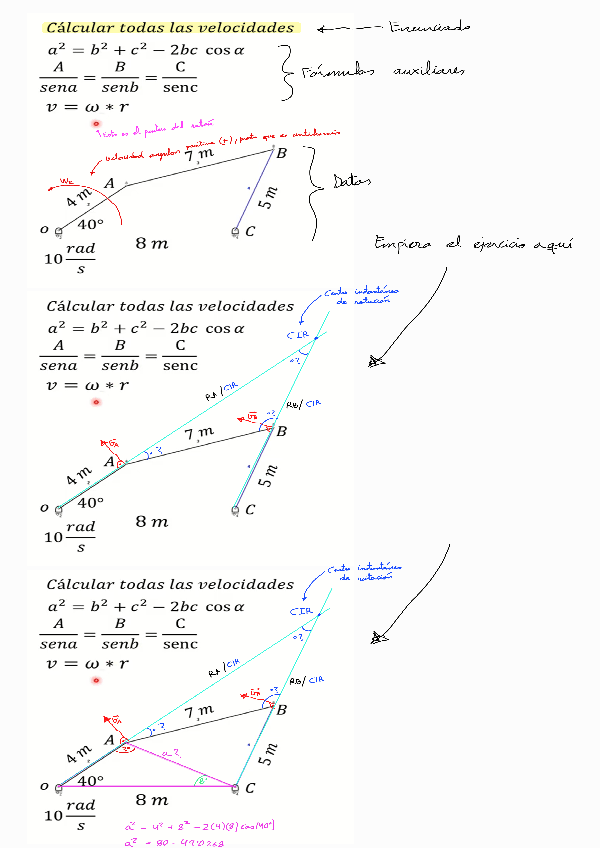 Cálcular todas las velocidades
Enunciado
a² = b² + c² − 2bc cos α
A/sena = B/senb = C/senc
Fórmulas auxiliares
v = ω * r
velocidad angular positiva (+), que es antihorario
7 m
B
A
4 m
40°
o
5 m
C
Datos
10 rad/s
8 m
Empieza el ejercicio aquí
Cálcular todas las velocidades
Centro instantáneo
de rotación
a² = b² + c² − 2bc cos α
CIR
A/sena = B/senb = C/senc
v = ω * r
RA/CIR
RB/CIR
7 m
B
A
4 m
40°
o
5 m
C
10 rad/s
8 m
Cálcular todas las velocidades
Centro instantáneo
de rotación
a² = b² + c² − 2bc cos α
CIR
A/sena = B/senb = C/senc
v = ω * r
RA/CIR
RB/CIR
7 m
B
A
4 m
a?
40°
o
5 m
C
10 rad/s
8 m
a² = 4² + 8² − 2(4)(8) cos(40°)